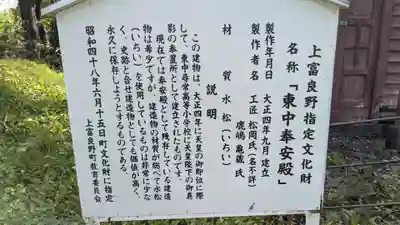 上富良野指定文化財
名称「東中奉安殿」
製作年月日　大正四年九月建立
製作者名　工匠松岡氏(名不詳)
鹿嶋亀蔵氏
材質　水松(いちい)
説明
この建物は、大正四年に天皇の御即位に際
して、東中尋常高等小学校に天皇陛下の御真
影の奉置所として建立されたものです。
現在では奉安殿として残存している建造
物は希少ですが、建造物の材質が総べて水松
(いちい)を使用しているものは非常に少な
く、史跡と合せ建造物としても価値が高く、
永久に保存しようとするものである。
昭和四十八年六月十五日町文化財に指定
上富良野町教育委員会